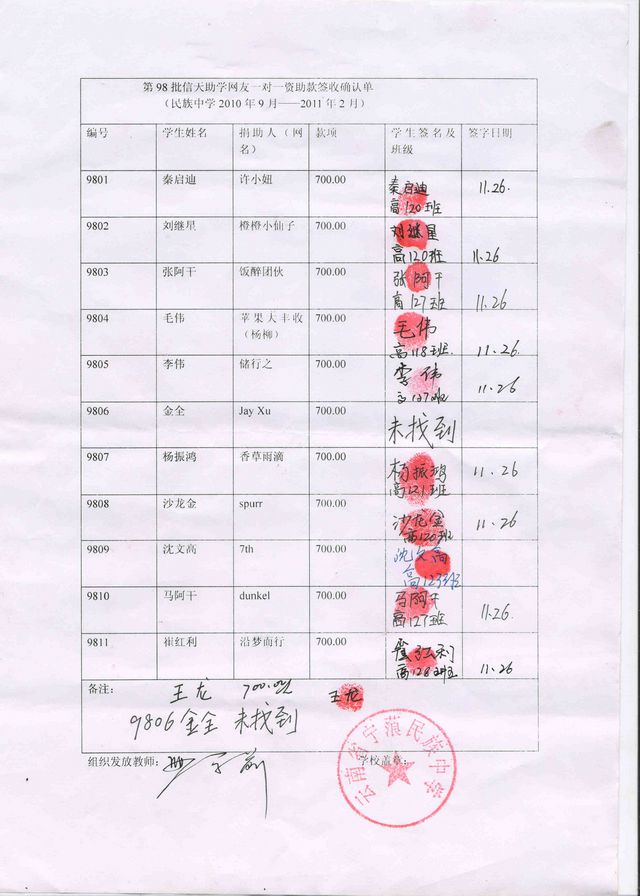 第 98 批信天助学网友一对一资助款签收确认单
（民族中学 2010 年 9 月——2011 年 2 月）
编号 学生姓名 捐助人（网名） 款项 学生签名及班级 签字日期
9801 秦启迪 许小妞 700.00 秦启迪 高120班 11.26.
9802 刘继星 橙橙小仙子 700.00 刘继星 高120班 11.26
9803 张阿干 饭醉团伙 700.00 张阿干 高127班 11.26
9804 毛伟 苹果大丰收（杨柳） 700.00 毛伟 高118班. 11.26.
9805 李伟 储行之 700.00 李伟 高127班 11.26
9806 金全 Jay Xu 700.00 未找到
9807 杨振鸿 香草雨滴 700.00 杨振鸿 高121班 11.26
9808 沙龙金 spurr 700.00 沙龙金 高120班 11.26
9809 沈文高 7th 700.00 沈文高 高123班
9810 马阿干 dunkel 700.00 马阿干 高127班 11.26.
9811 崔红利 沿梦而行 700.00 高128班 11.26
备注： 王龙 700.00元 王龙
9806 金全 未找到
组织发放教师： 学校盖章：
云南省宁蒗民族中学